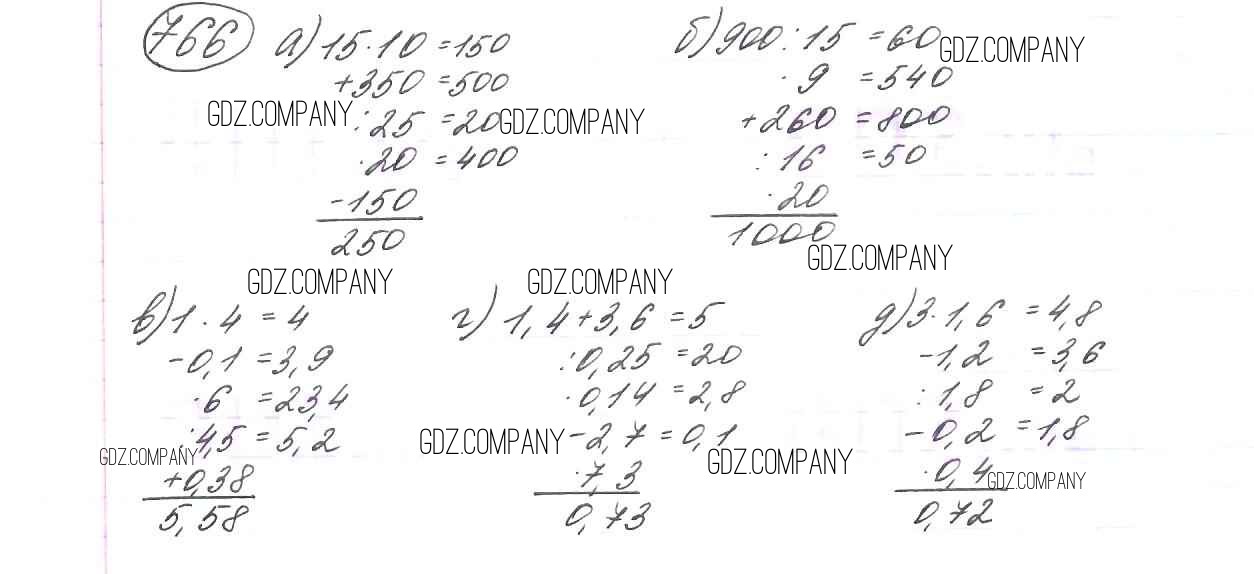 766 а) 15·10 =150
+350 =500
:25 =20
·20 =400
-150
250
б) 900:15 =60
·9 =540
+260 =800
:16 =50
·20
1000
в) 1·4 =4
-0,1 =3,9
·6 =23,4
:4,5 =5,2
+0,38
5,58
г) 1,4+3,6 =5
:0,25 =20
·0,14 =2,8
-2,7 =0,1
·7,3
0,73
д) 3·1,6 =4,8
-1,2 =3,6
:1,8 =2
-0,2 =1,8
·0,4
0,72
GDZ.COMPANY
GDZ.COMPANY
GDZ.COMPANY
GDZ.COMPANY
GDZ.COMPANY
GDZ.COMPANY
GDZ.COMPANY
GDZ.COMPANY
GDZ.COMPANY
GDZ.COMPANY